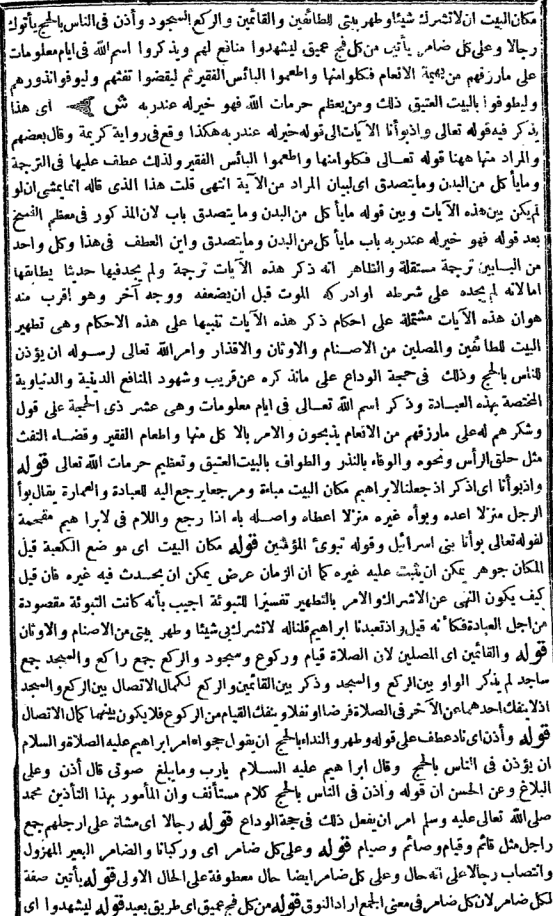 مكان البيت ان لا تشرك شيئا وطهر بيتى للطائفين والقائمين والركع السجود وأذن فى الناس بالحج يأتوك
رجالا وعلى كل ضامر يأتين من كل فج عميق ليشهدوا منافع لهم ويذكروا اسم الله فى ايام معلومات
على مارزقهم من بهيمة الانعام فكلوا منها واطعموا البائس الفقير ثم ليقضوا تفثهم وليوفوا نذورهم
وليطوفوا بالبيت العتيق ذلك ومن يعظم حرمات الله فهو خير له عند ربه ش اى هذا
يذكر فيه قوله تعالى واذ بوأنا الآيات الى قوله خير له عند ربه هكذا وقع فى رواية كريمة وقال بعضهم
والمراد منها ههنا قوله تعـالى فكلوا منها واطعموا البائس الفقير ولذلك عطف عليها فى الترجمة
وما يأكل من البدن وما يتصدق اى لبيان المراد من الآية انتهى قلت هذا الذى قاله انما يمشى ان لو
لم يكن بين هذه الآيات وبين قوله ما يأكل من البدن وما يتصدق باب لان المذكور فى معظم النسخ
بعد قوله فهو خير له عند ربه باب ما يأكل من البدن وما يتصدق واين العطف فى هذا وكل واحد
من البـابين ترجمة مستقلة والظاهر انه ذكر هذه الآيات ترجمة ولم يجد فيها حديثا يطابقها
اما لانه لم يجده على شرطه او ادركه الموت قبل ان يضعفه ووجه آخر وهو اقرب منه
هو ان هذه الآيات مشتملة على احكام ذكر هذه الآيات تنبيها على هذه الاحكام وهى تطهير
البيت للطائفين والمصلين من الاصـنام والاوثان والاقذار وامر الله تعالى لرسـوله ان يؤذن
للناس بالحج وذلك فى حجة الوداع على ما نذكره عن قريب وشهود المنافع الدينية والدنياوية
المختصة بهذه العبـادة وذكر اسم الله تعـالى فى ايام معلومات وهى عشر ذى الحجة على قول
وشكرهم له على مارزقهم من الانعام يذبحون والامر بالاكل منها واطعام الفقير وقضـاء التفث
مثل حلق الرأس ونحوه والوفاء بالنذر والطواف بالبيت العتيق وتعظيم حرمات الله تعالى قوله
واذ بوأنا اى اذكر اذ جعلنا لابراهيم مكان البيت مباءة ومرجعا يرجع اليه للعبادة والعمارة يقال بوأ
الرجل منزلا اعده وبوأه غيره منزلا اعطاه واصـله باء اذا رجع واللام فى لابراهيم مقحمة
لقوله تعالى بوأنا بنى اسرائيل وقوله تبوئ المؤمنين قوله مكان البيت اى موضع الكعبة قيل
المكان جوهر يمكن ان يثبت عليه غيره كما ان الزمان عرض يمكن ان يحـدث فيه غيره فان قيل
كيف يكون النهى عن الاشراك والامر بالتطهير تفسيرا للتبوئة اجيب بأنه كانت التبوئة مقصودة
من اجل العبادة فكأنه قيل واذ تعبدنا ابراهيم قلنا له لاتشرك بى شيئا وطهر بيتى من الاصنام والاوثان
قوله والقائمين اى المصلين لان الصلاة قيام وركوع وسجود والركع جمع راكع والسجد جمع
ساجد لم يذكر الواو بين الركع والسجد وذكر بين القائمين والركع لكمال الاتصال بين الركع والسجد
اذ لا ينفك احدهما عن الآخر فى الصلاة فرضا او نفلا وينفك القيام من الركوع فلا يكون بينهما كمال الاتصال
قوله وأذن اى ناد عطف على قوله وطهر والنداء بالحج ان يقول حجوا امر ابراهيم عليه الصلاة والسلام
ان يؤذن فى الناس بالحج وقال ابراهيم عليه السـلام يارب وما يبلغ صوتى قال أذن وعلى
البلاغ وعن الحسن ان قوله واذن فى الناس بالحج كلام مستأنف وان المأمور بهذا التأذين محمد
صلى الله تعالى عليه وسلم امر ان يفعل ذلك فى حجة الوداع قوله رجالا اى مشاة على ارجلهم جمع
راجل مثل قائم وقيام وصائم وصيام قوله وعلى كل ضامر اى وركبانا والضامر البعير المهزول
وانتصاب رجالا على انه حال وعلى كل ضامر ايضا حال معطوفة على الحال الاولى قوله يأتين صفة
لكل ضامر لان كل ضامر فى معنى الجمع اراد النوق قوله من كل فج عميق اى طريق بعيد قوله ليشهدوا اى